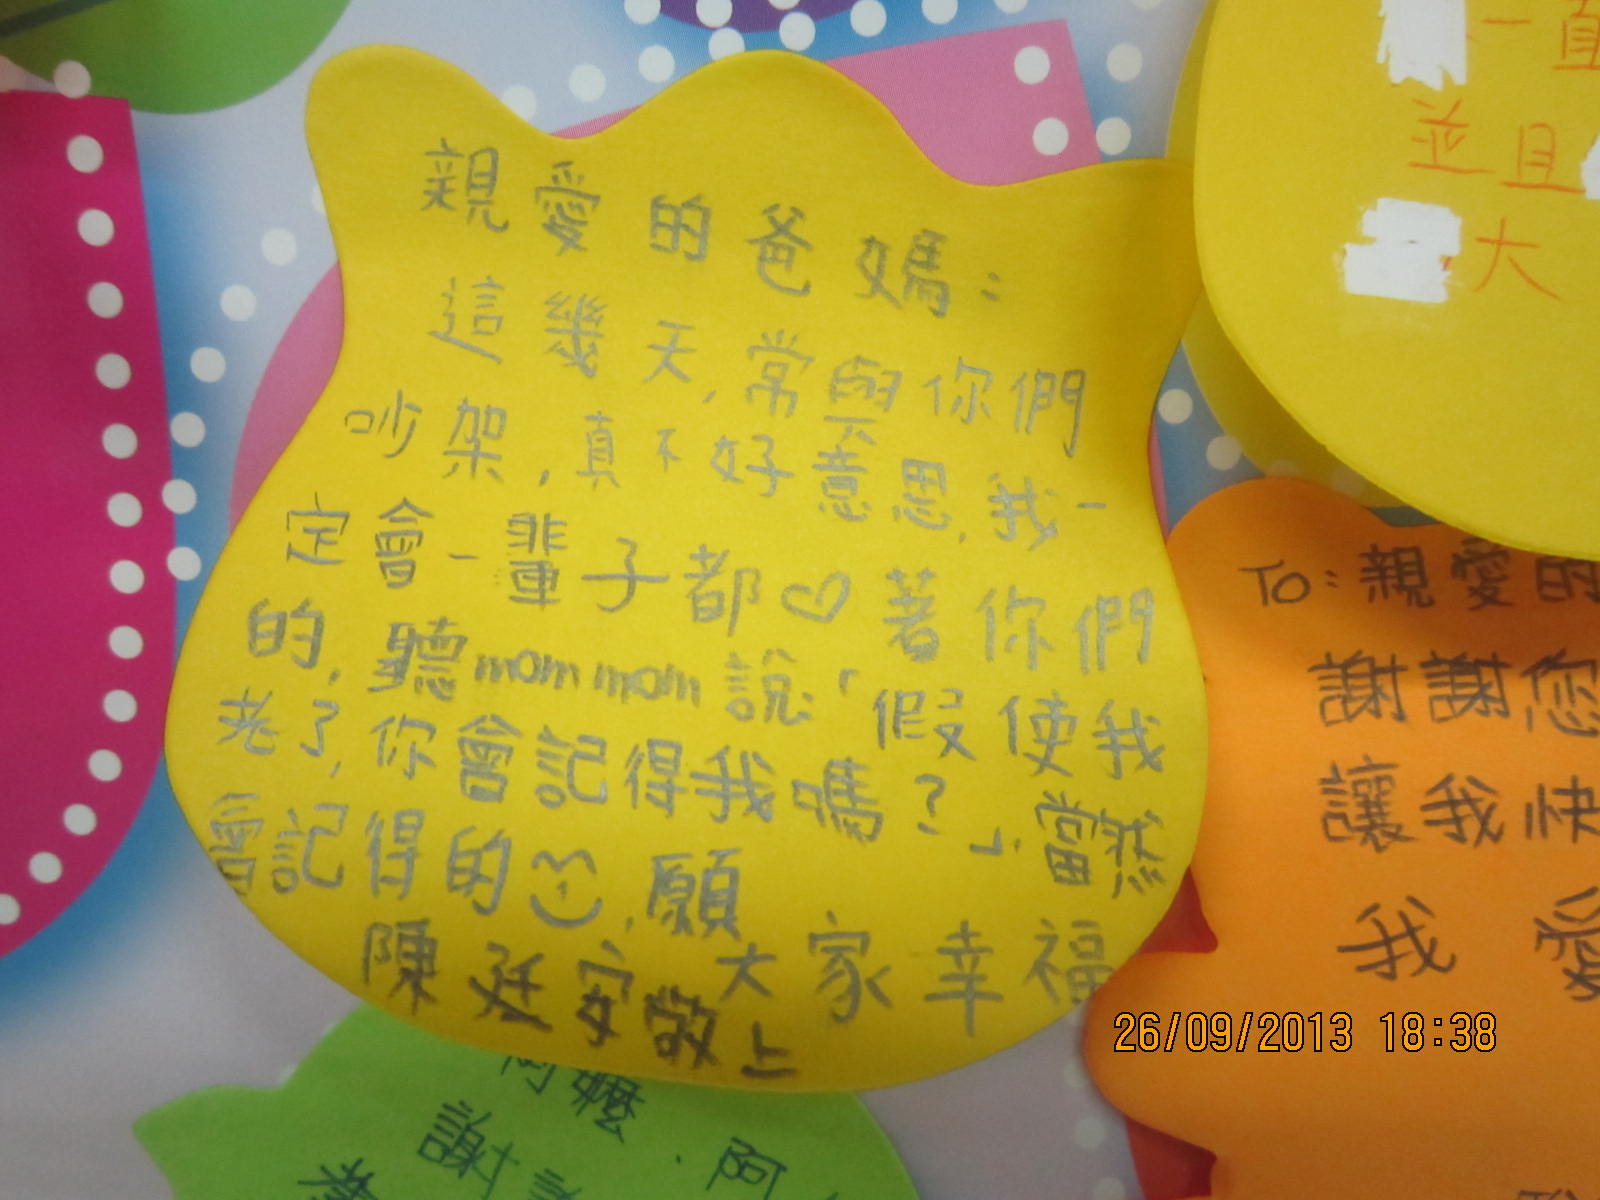 親愛的爸媽：
這幾天，常與你們
吵架，真不好意思，我一
定會一輩子都♡著你們
的，聽mommom說「假使我
老了，你會記得我嗎？」，當然
會記得的，願
大家幸福
陳廷安敬上
一直
並且
大
To：親愛的
謝謝您
讓我快
我愛
阿嬤．阿
謝謝
養
26/09/2013 18:38